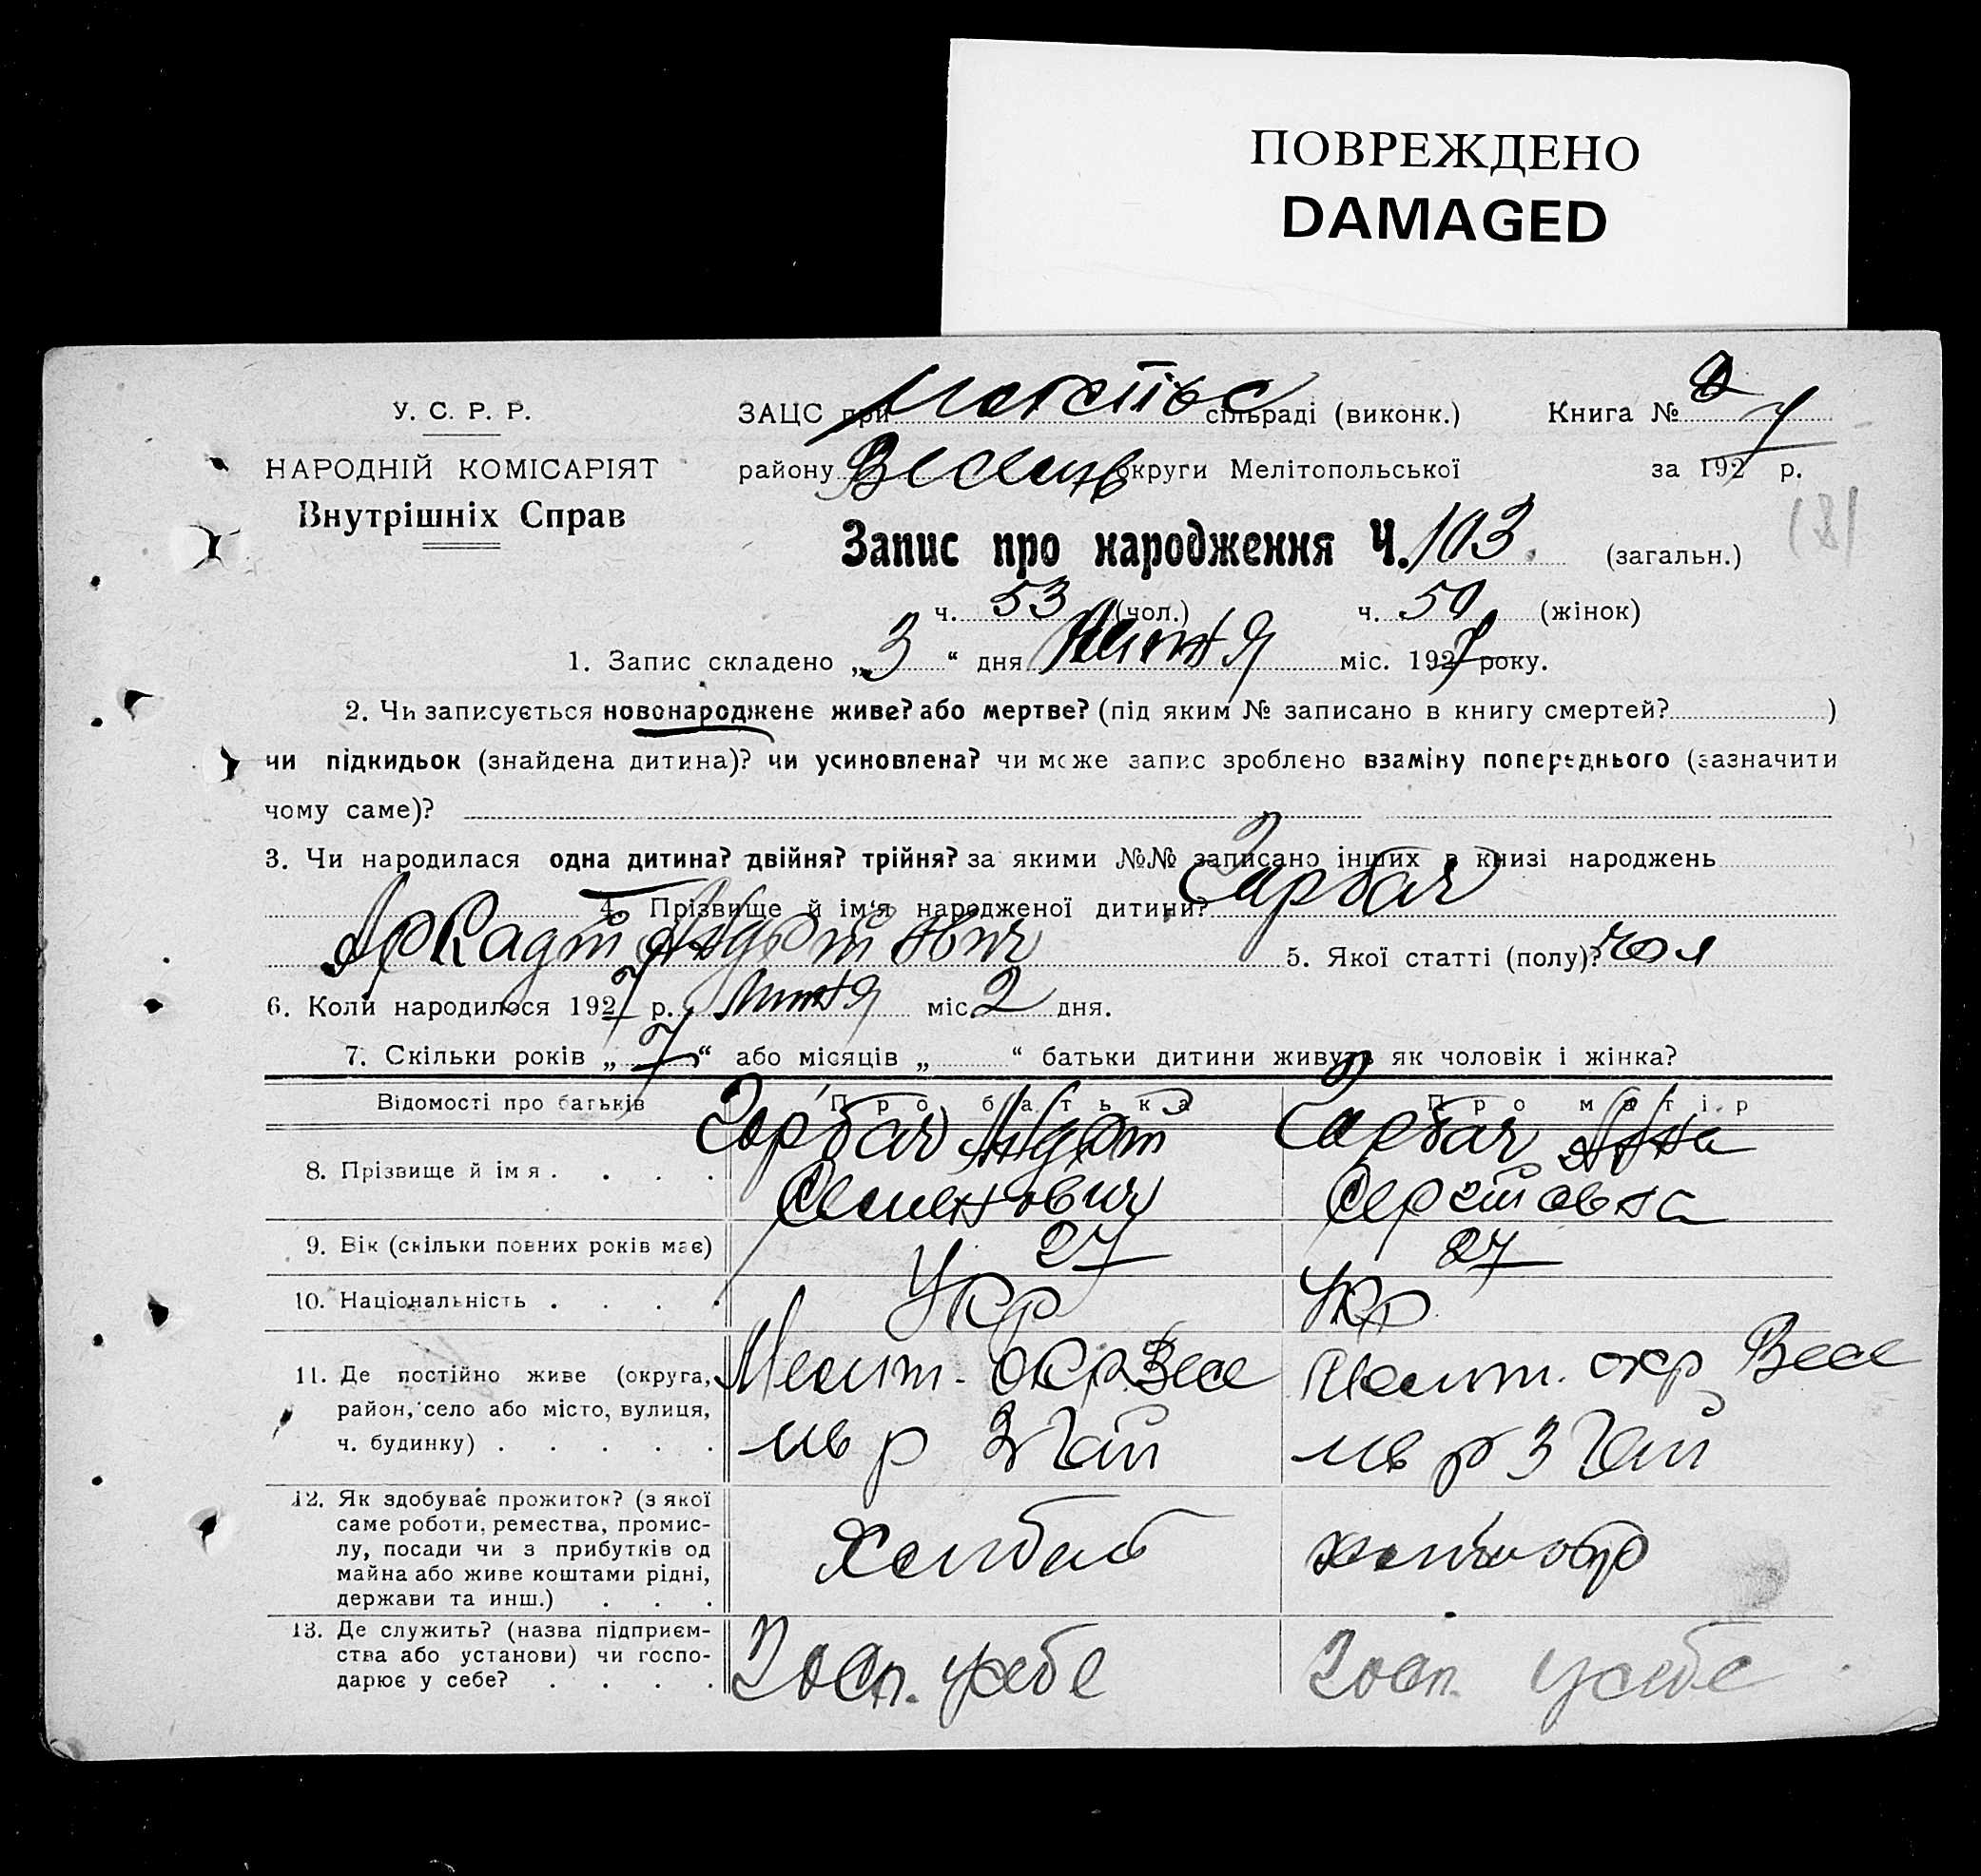 ПОВРЕЖДЕНО
DAMAGED
У. С. Р. Р.
НАРОДНІЙ КОМІСАРІЯТ
Внутрішніх Справ
ЗАЦС при сільраді (виконк.) Книга №
району округи Мелітопольської за 1927 р.
Запис про народження Ч. 103. (загальн.)
ч. 53 (чол.) ч. 50 (жінок)
1. Запис складено „ 3 “ дня міс. 1927 року.
2. Чи записується новонароджене живе? або мертве? (під яким № записано в книгу смертей? )
чи підкидьок (знайдена дитина)? чи усиновлена? чи може запис зроблено взаміну попереднього (зазначити
чому саме)?
3. Чи народилася одна дитина? двійня? трійня? за якими №№ записано інших в книзі народжень
4. Прізвище й ім‘я народженої дитини? Горбач
Аркадій 5. Якої статті (полу)? чол
6. Коли народилося 1927 р. липня міс. 2 дня.
7. Скільки років „ 7 “ або місяців „ “ батьки дитини живуть як чоловік і жінка?
Відомості про батьків Про батька Про матір
8. Прізвище й ім я . . . . Горбач Андрій Горбач Анна
Семенович Сергіївна
9. Вік (скільки повних років має) 27 27
10. Національність . . . . Укр Укр
11. Де постійно живе (округа, Меліт. окр. Весе Меліт. окр Весе
район, село або місто, вулиця, лв р лв р
ч. будинку) . . . . .
12. Як здобуває прожиток? (з якої
саме роботи, ремества, промис-
лу, посади чи з прибутків од
майна або живе коштами рідні,
держави та инш.) . . .
13. Де служить? (назва підприєм-
ства або установи) чи госпо- Госп. усебе Госп. усебе
дарює у себе? . . . .